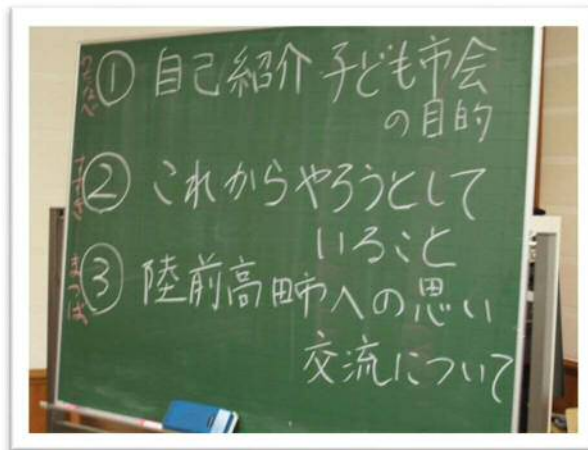 わたなべ
① 自己紹介 子ども市会
の目的
すずき
② これからやろうとして
いること
まつば
③ 陸前高田市への思い
交流について